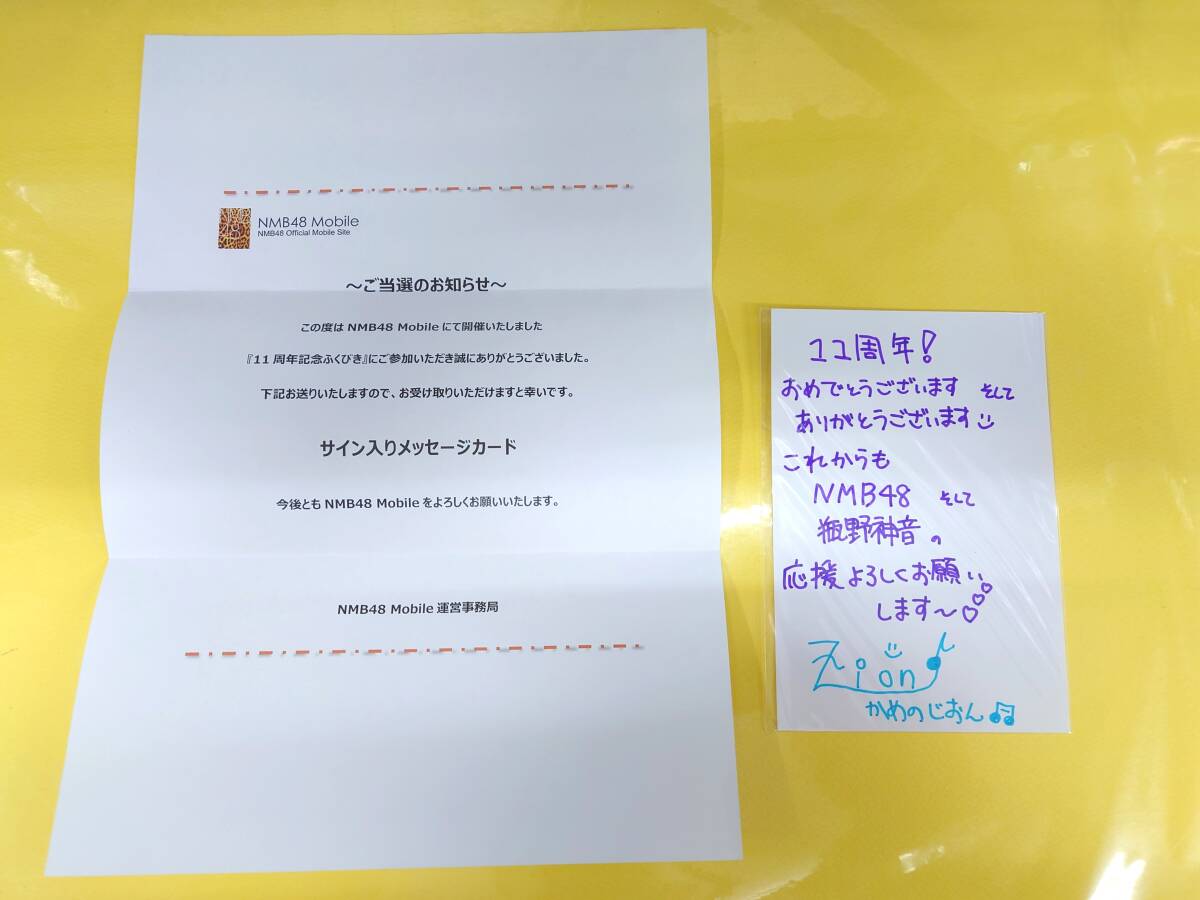 NMB48 Mobile
NMB48 Official Mobile Site
～ご当選のお知らせ～
この度は NMB48 Mobile にて開催いたしました
『11 周年記念ふくびき』にご参加いただき誠にありがとうございました。
下記お送りいたしますので、お受け取りいただけますと幸いです。
サイン入りメッセージカード
今後とも NMB48 Mobile をよろしくお願いいたします。
NMB48 Mobile 運営事務局
11周年!
おめでとうございます そして
ありがとうございます
これからも
NMB48 そして
瓶野神音の
応援よろしくお願い
します〜
Zion
かめのじおん